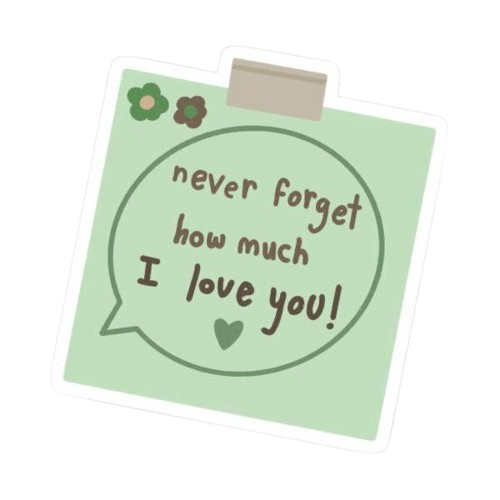 never forget
how much
I love you!